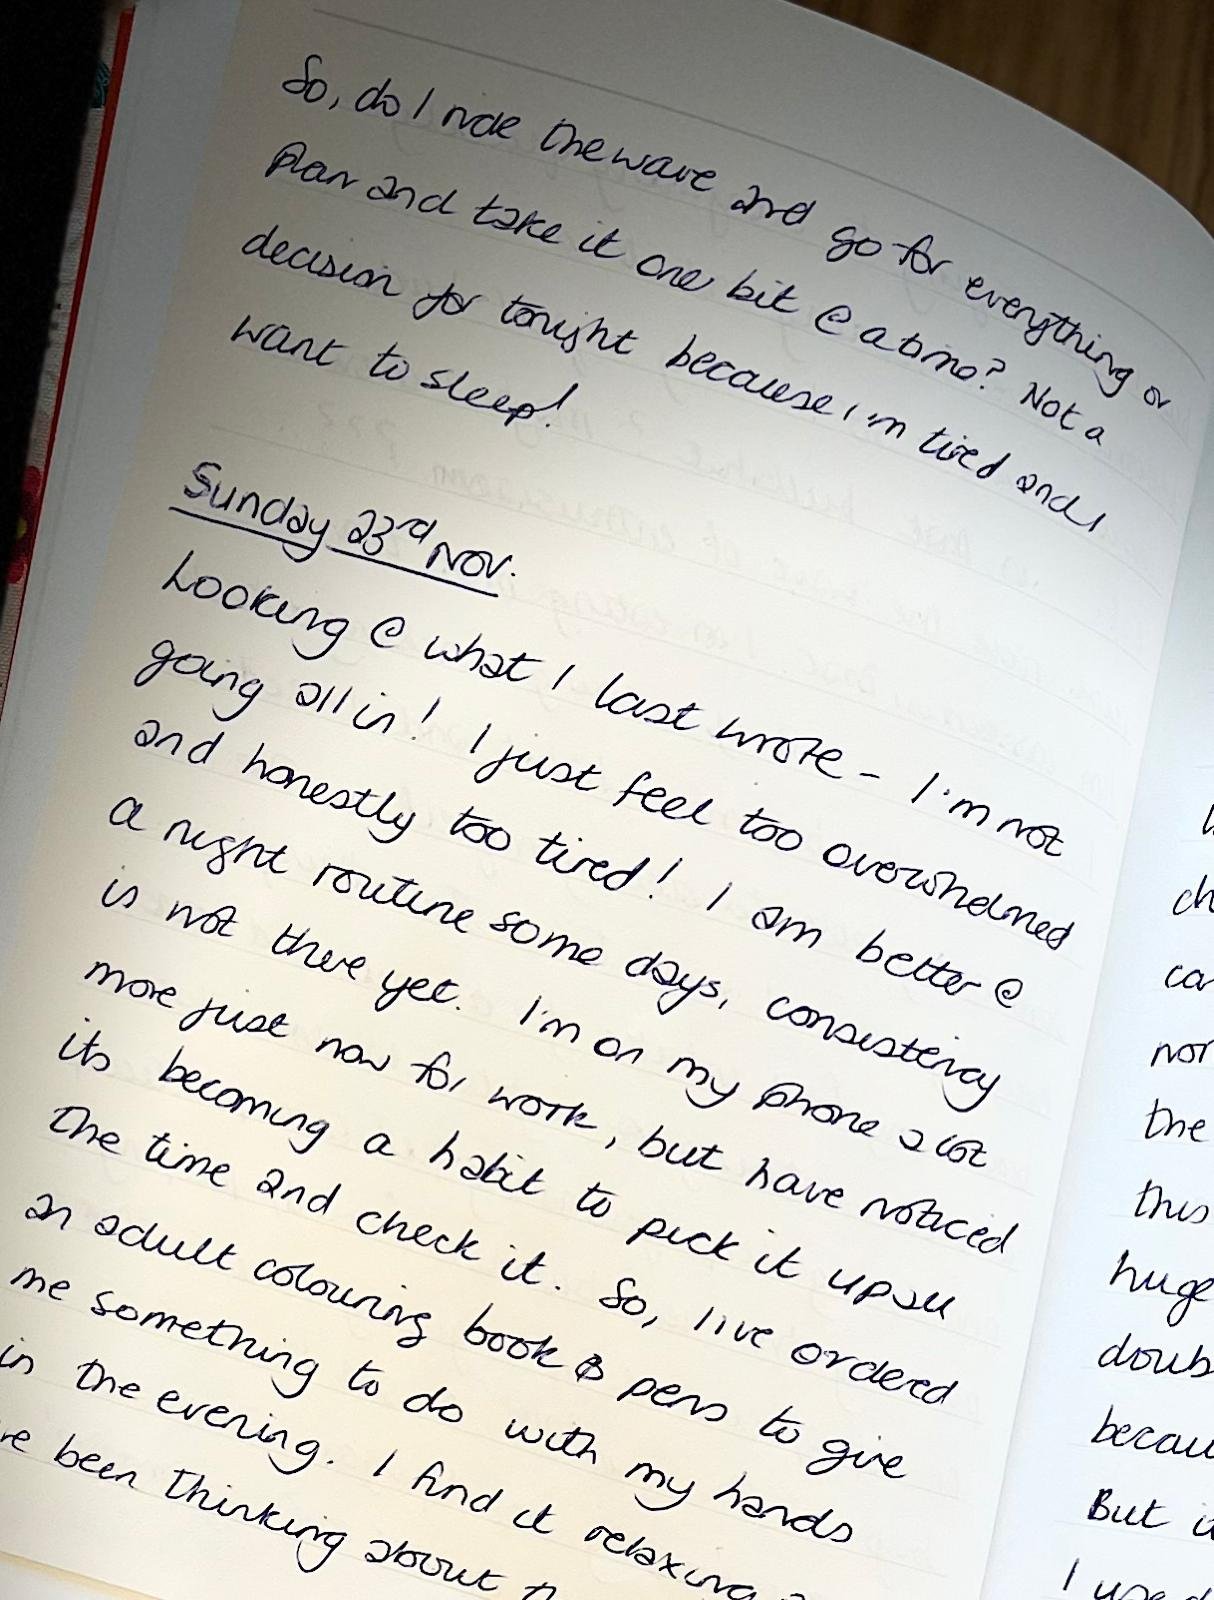 So, do I ride the wave and go for everything or
plan and take it one bit @ a time? Not a
decision for tonight because I'm tired and I
want to sleep!
Sunday 23rd Nov.
Looking @ what I last wrote - I'm not
going all in! I just feel too overwhelmed
and honestly too tired! I am better @
a night routine some days, consistency
is not there yet. I'm on my phone a lot
more just now for work, but have noticed
its becoming a habit to pick it up all
the time and check it. So, I've ordered
an adult colouring book & pens to give
me something to do with my hands
in the evening. I find it relaxing
been thinking about
ch
car
nor
the
this
huge
doub
becau
But i
I used